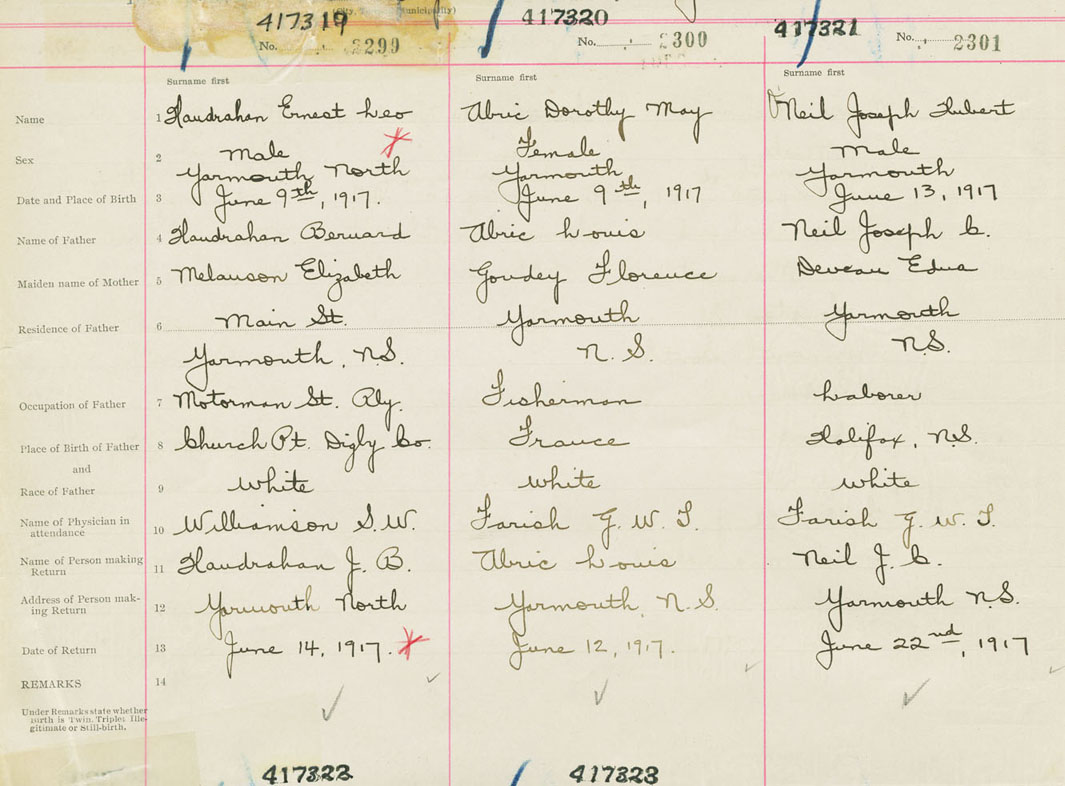 (City, Town or Municipality)
417319 417320 417321
No. 2299 No. 2300 No. 2301
Surname first Surname first Surname first
Name 1 Handrahan Ernest Leo Abric Dorothy May Neil Joseph Hubert
Sex 2 male Female male
Yarmouth North Yarmouth Yarmouth
Date and Place of Birth 3 June 9th, 1917. June 9th, 1917 June 13, 1917
Name of Father 4 Handrahan Bernard Abric Louis Neil Joseph C.
Maiden name of Mother 5 Melanson Elizabeth Goudey Florence Deveau Edna
Residence of Father 6 Main St. Yarmouth Yarmouth
Yarmouth, N.S. N. S. N.S.
Occupation of Father 7 Motorman St. Rly. Fisherman Laborer
Place of Birth of Father 8 Church Pt. Digby Co. France Halifax, N.S.
and
Race of Father 9 white white white
Name of Physician in
attendance 10 Williamson S.W. Farish G. W. T. Farish G. W. T.
Name of Person making
Return 11 Handrahan J. B. Abric Louis Neil J. C.
Address of Person mak-
ing Return 12 Yarmouth North Yarmouth, N. S. Yarmouth N.S.
Date of Return 13 June 14, 1917. June 12, 1917. June 22nd, 1917
REMARKS 14
Under Remarks state whether
Birth is Twin, Triplet, Ille-
gitimate or Still-birth.
417322 417323